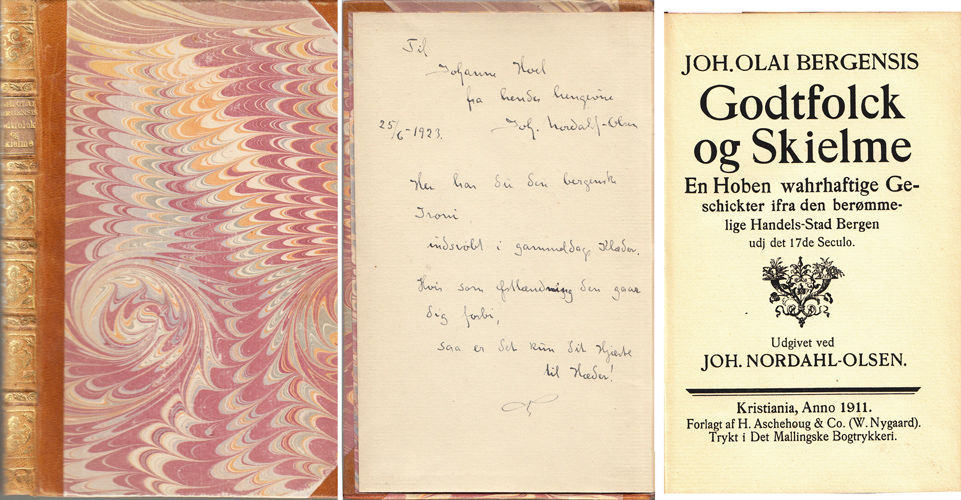 JOH. OLAI
BERGENSIS
Godtfolck
og
Skielme
Til
Johanne Hoel
fra hendes hengivne
25/6-1923. Joh. Nordahl-Olsen
Her har du den bergensk
Ironi
indsvøbt i gammeldags Klæder.
Hvis som østlænding den gaar
dig forbi,
saa er det kun dit Hjærte
til Hæder!
JOH. OLAI BERGENSIS
Godtfolck
og Skielme
En Hoben wahrhaftige Ge-
schickter ifra den berømme-
lige Handels-Stad Bergen
udj det 17de Seculo.
Udgivet ved
JOH. NORDAHL-OLSEN.
Kristiania, Anno 1911.
Forlagt af H. Aschehoug & Co. (W. Nygaard).
Trykt i Det Mallingske Bogtrykkeri.